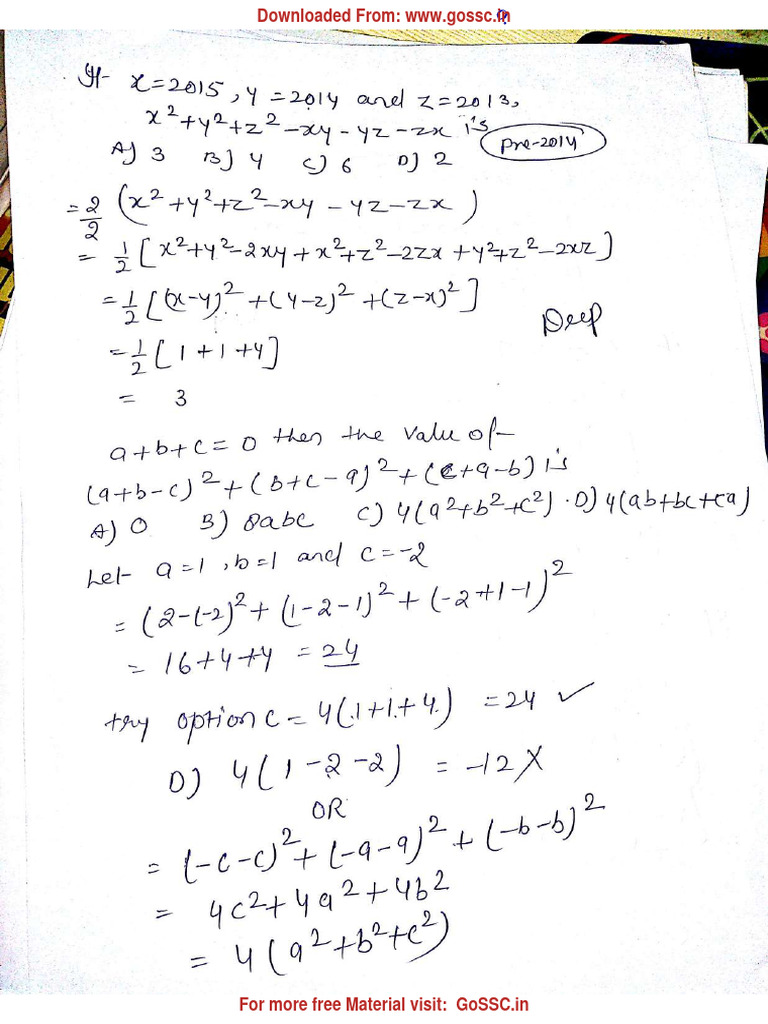 Downloaded From: www.gossc.in
If x=2015, y=2014 and z=2013,
x²+y²+z²-xy-yz-zx is
Pre-2014
A) 3 B) 4 C) 6 D) 2
= 2/2 (x²+y²+z²-xy-yz-zx)
= 1/2 [x²+y²-2xy+x²+z²-2zx+y²+z²-2xz]
= 1/2 [(x-y)²+(y-z)²+(z-x)²]
Deep
= 1/2 [1+1+4]
= 3
a+b+c=0 then the value of
(a+b-c)²+(b+c-a)²+(c+a-b) is
A) 0 B) 8abc C) 4(a²+b²+c²). D) 4(ab+bc+ca)
Let a=1, b=1 and c=-2
= (2-(-2)²+(1-2-1)²+(-2+1-1)²
= 16+4+4 = 24
try option c = 4(1+1+4) = 24 ✓
D) 4(1-2-2) = -12 X
OR
= (-c-c)²+(-a-a)²+(-b-b)²
= 4c²+4a²+4b²
= 4(a²+b²+c²)
For more free Material visit: GoSSC.in